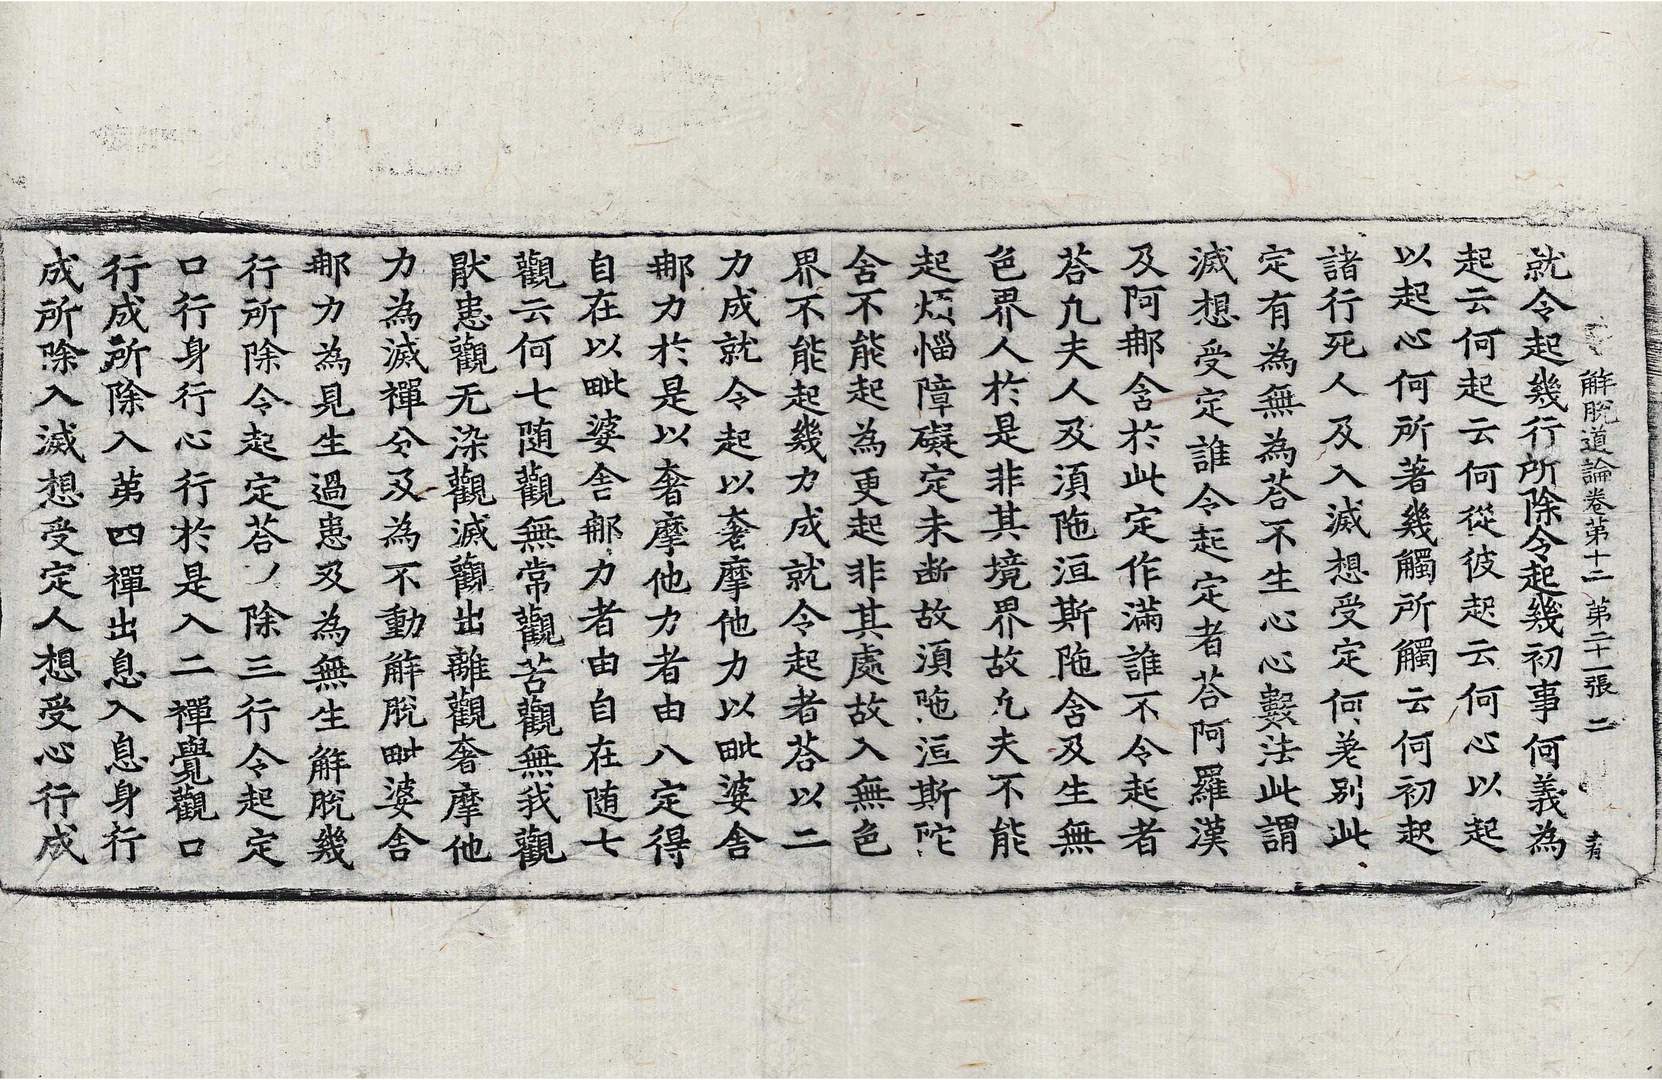 解脫道論卷第十二 第二十一張 二 靑
就令起幾行所除令起幾初事何義為
起云何起云何從彼起云何心以起
以起心何所著幾觸所觸云何初起
諸行死人及入滅想受定何差別此
定有為無為荅不生心心數法此謂
滅想受定誰令起定者荅阿羅漢
及阿那含於此定作滿誰不令起者
荅凡夫人及湏陁洹斯陁含及生無
色界人於是非其境界故凡夫不能
起煩惱障礙定未断故湏陁洹斯陀
含不能起為更起非其處故入無色
界不能起幾力成就令起者荅以二
力成就令起以奢摩他力以毗婆舍
那力於是以奢摩他力者由八定得
自在以毗婆舍那力者由自在随七
觀云何七随觀無常觀苦觀無我觀
猒患觀无染觀滅觀出離觀奢摩他
力為滅禪分及為不動解脫毗婆舍
那力為見生過患及為無生解脫幾
行所除令起定荅除三行令起定
口行身行心行於是入二禪覺觀口
行成所除入第四禪出息入息身行
成所除入滅想受定人想受心行成